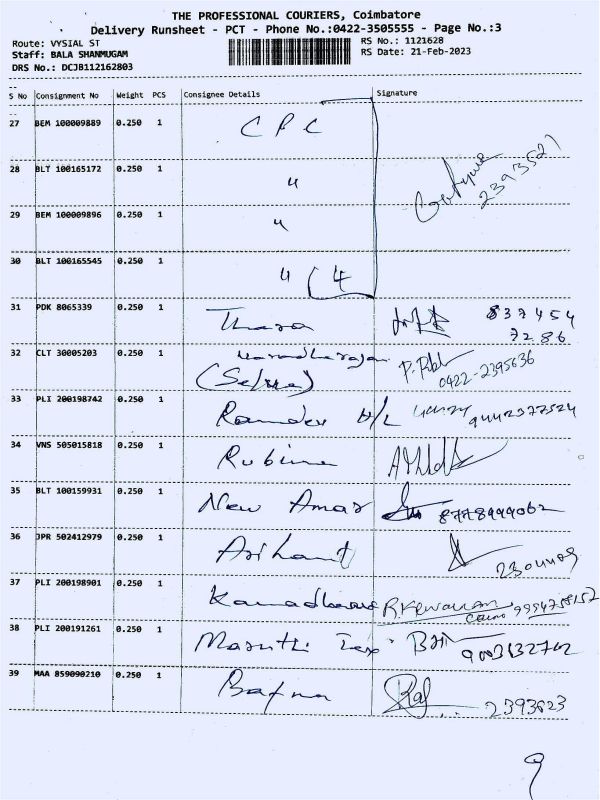 THE PROFESSIONAL COURIERS, Coimbatore
Delivery Runsheet - PCT - Phone No.:0422-3505555 - Page No.:3
Route: VYSIAL ST
RS No.: 1121628
Staff: BALA SHANMUGAM
RS Date: 21-Feb-2023
DRS No.: DCJB112162803
S No Consignment No Weight PCS Consignee Details Signature
27 BEM 100009889 0.250 1 C P C
28 BLT 100165172 0.250 1 " 2393521
29 BEM 100009896 0.250 1 "
30 BLT 100165545 0.250 1 " (4
31 PDK 8065339 0.250 1 Thara 837454
7286
32 CLT 30005203 0.250 1 Varadharajan
(Selvas) 0422-2395636
33 PLI 200198742 0.250 1 Ramdev H/L 9442377524
34 VNS 505015818 0.250 1 Rubina
35 BLT 100159931 0.250 1 New Amar 8778999062
36 JPR 502412979 0.250 1 Arihant
37 PLI 200198901 0.250 1 R.Kewaram 9994758152
38 PLI 200191261 0.250 1 Maruthi Tex
39 MAA 859090210 0.250 1 Bafna Raj 2393623
9